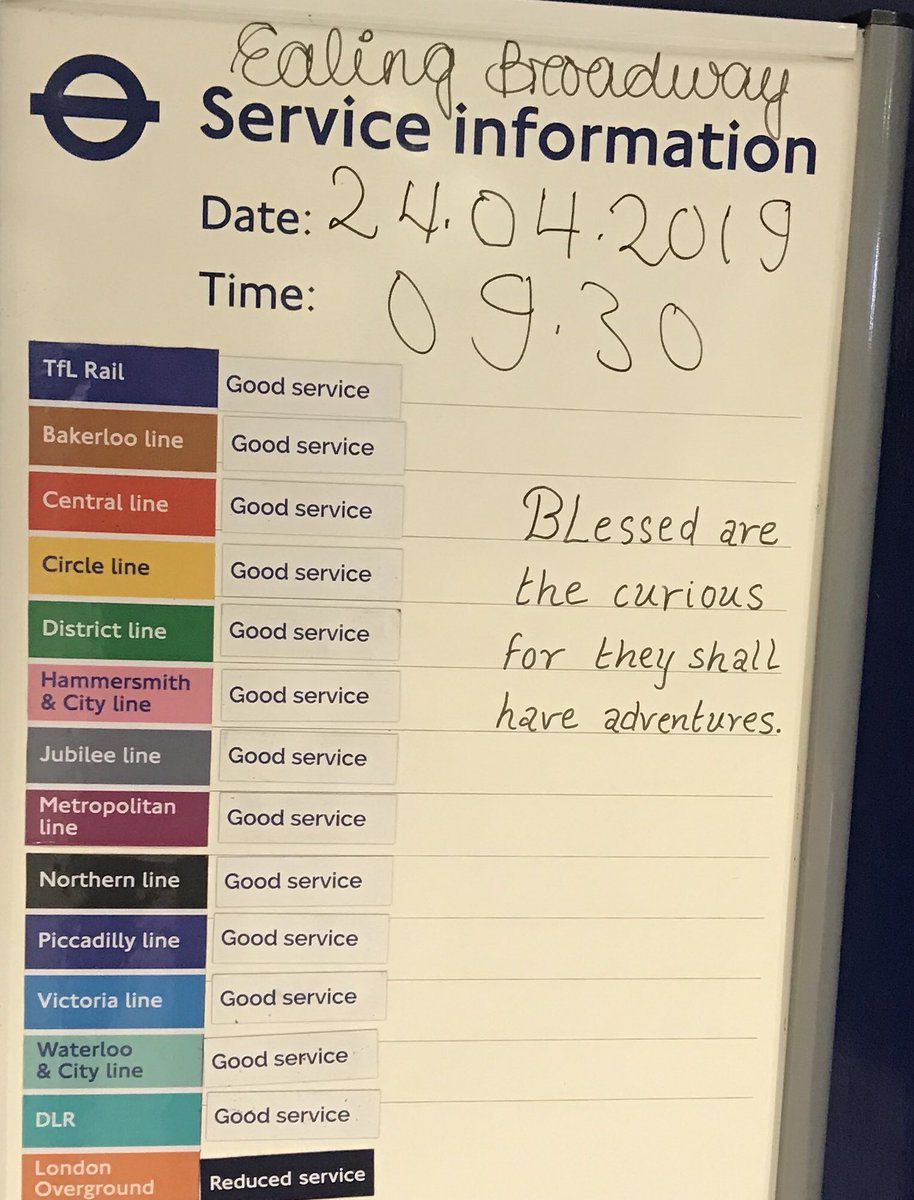 Ealing Broadway
Service information
Date: 24.04.2019
Time: 09.30
TfL Rail Good service
Bakerloo line Good service
Central line Good service
Circle line Good service
District line Good service
Hammersmith
& City line Good service
Jubilee line Good service
Metropolitan
line Good service
Northern line Good service
Piccadilly line Good service
Victoria line Good service
Waterloo
& City line Good service
DLR Good service
London
Overground Reduced service
BLessed are
the curious
for they shall
have adventures.